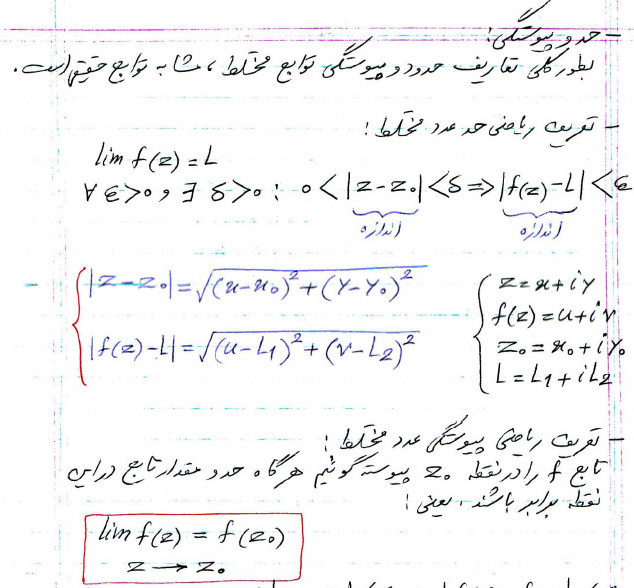 - حد و پیوستگی:
بطور کلی تعاریف حدود و پیوستگی توابع مختلط، مشابه توابع حقیقی است.
- تعریف ریاضی حد عدد مختلط:
lim f(z) = L
∀ ε>0 و ∃ δ>0 : 0<|z-z₀|<δ => |f(z)-L|<ε
اندازه اندازه
|z-z₀| = √((x-x₀)²+(y-y₀)²)
|f(z)-L| = √((u-L₁)²+(v-L₂)²)
z = x+iy
f(z) = u+iv
z₀ = x₀+iy₀
L = L₁+iL₂
- تعریف ریاضی پیوستگی عدد مختلط:
تابع f را در نقطه z₀ پیوسته گوئیم هرگاه حد و مقدار تابع در این
نقطه برابر باشند، یعنی:
lim f(z) = f(z₀)
z → z₀